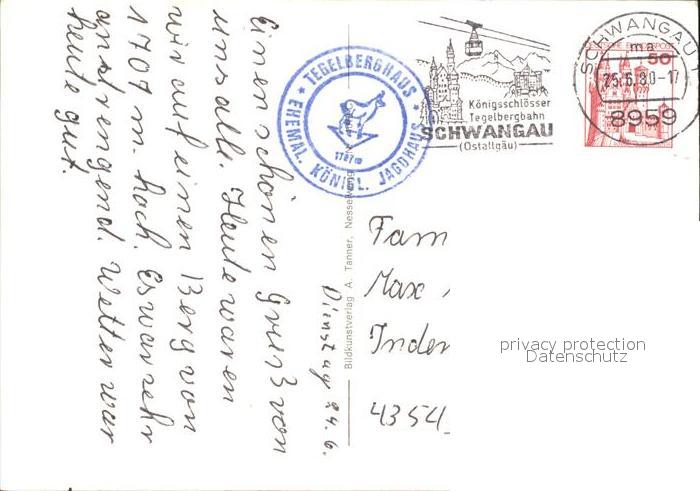 Dienstag 24.6.
Einen schönen Gruß von
uns alle. Heute waren
wir auf einen Berg von
1707 m hoch. Es war sehr
anstrengend. Wetter war
heute gut.
★ TEGELBERGHAUS ★
EHEMAL. KÖNIGL. JAGDHAUS
1707m
Bildkunstverlag A. Tanner, Nesselwang
Königsschlösser
Tegelbergbahn
SCHWANGAU
(Ostallgäu)
SCHWANGAU
ma
25.6.80-17
8959
50
Fam
Max
Inder
4354
privacy protection
Datenschutz